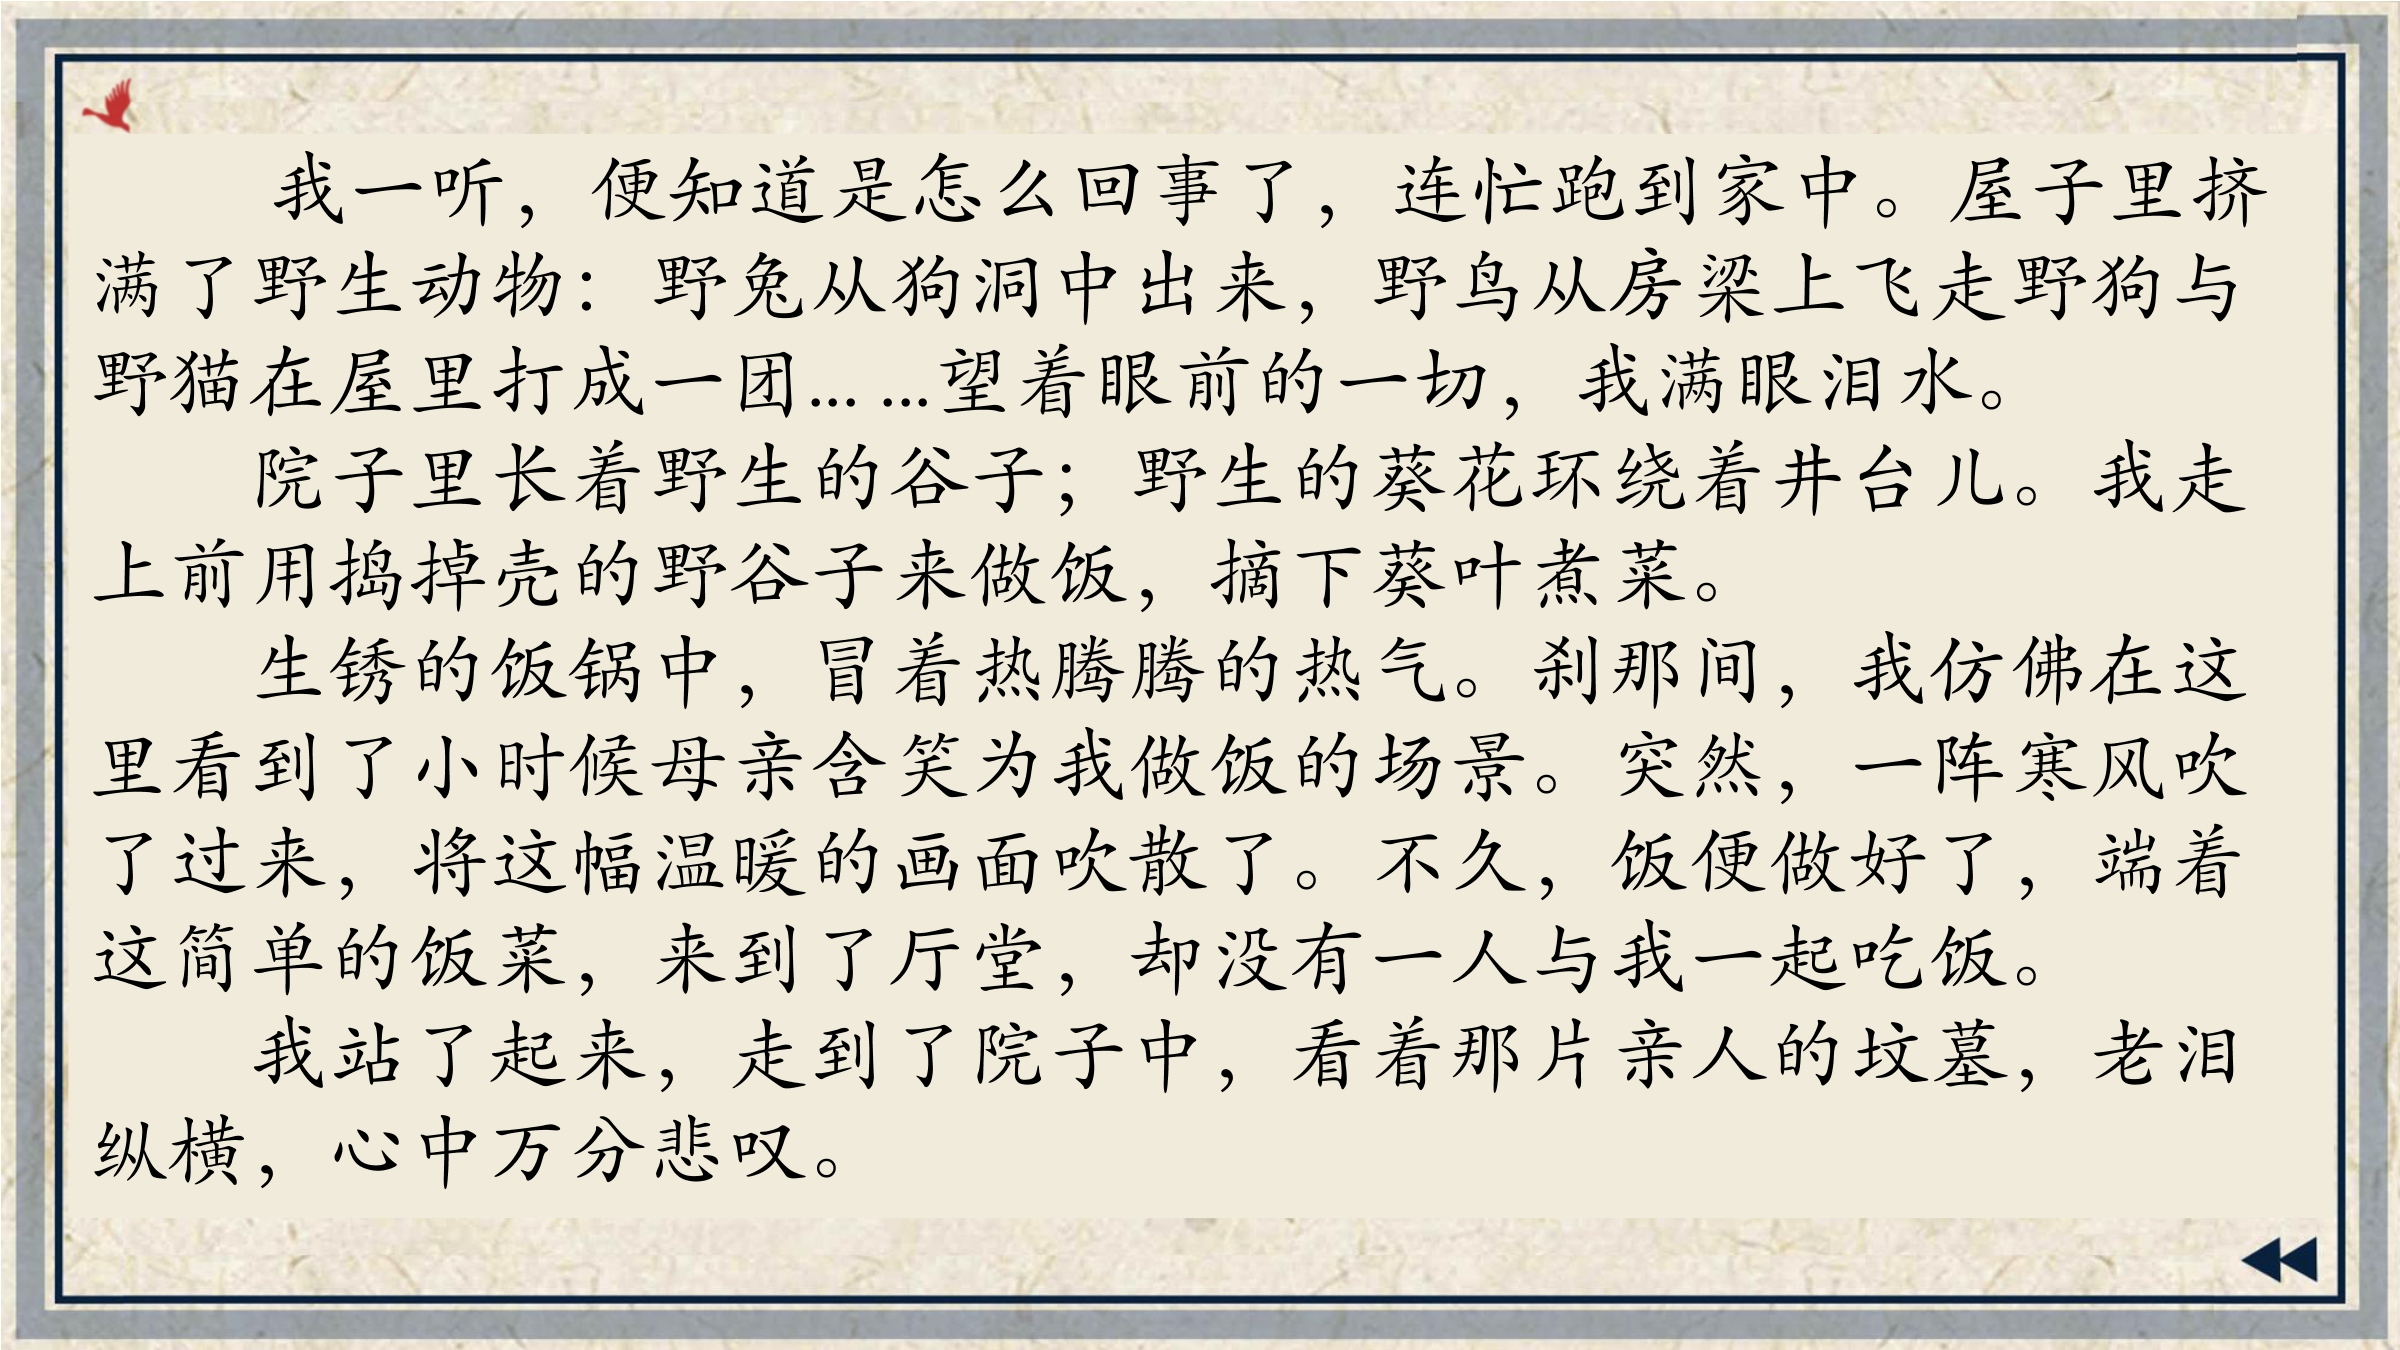 我一听，便知道是怎么回事了，连忙跑到家中。屋子里挤
满了野生动物：野兔从狗洞中出来，野鸟从房梁上飞走野狗与
野猫在屋里打成一团... ...望着眼前的一切，我满眼泪水。
院子里长着野生的谷子；野生的葵花环绕着井台儿。我走
上前用捣掉壳的野谷子来做饭，摘下葵叶煮菜。
生锈的饭锅中，冒着热腾腾的热气。刹那间，我仿佛在这
里看到了小时候母亲含笑为我做饭的场景。突然，一阵寒风吹
了过来，将这幅温暖的画面吹散了。不久，饭便做好了，端着
这简单的饭菜，来到了厅堂，却没有一人与我一起吃饭。
我站了起来，走到了院子中，看着那片亲人的坟墓，老泪
纵横，心中万分悲叹。